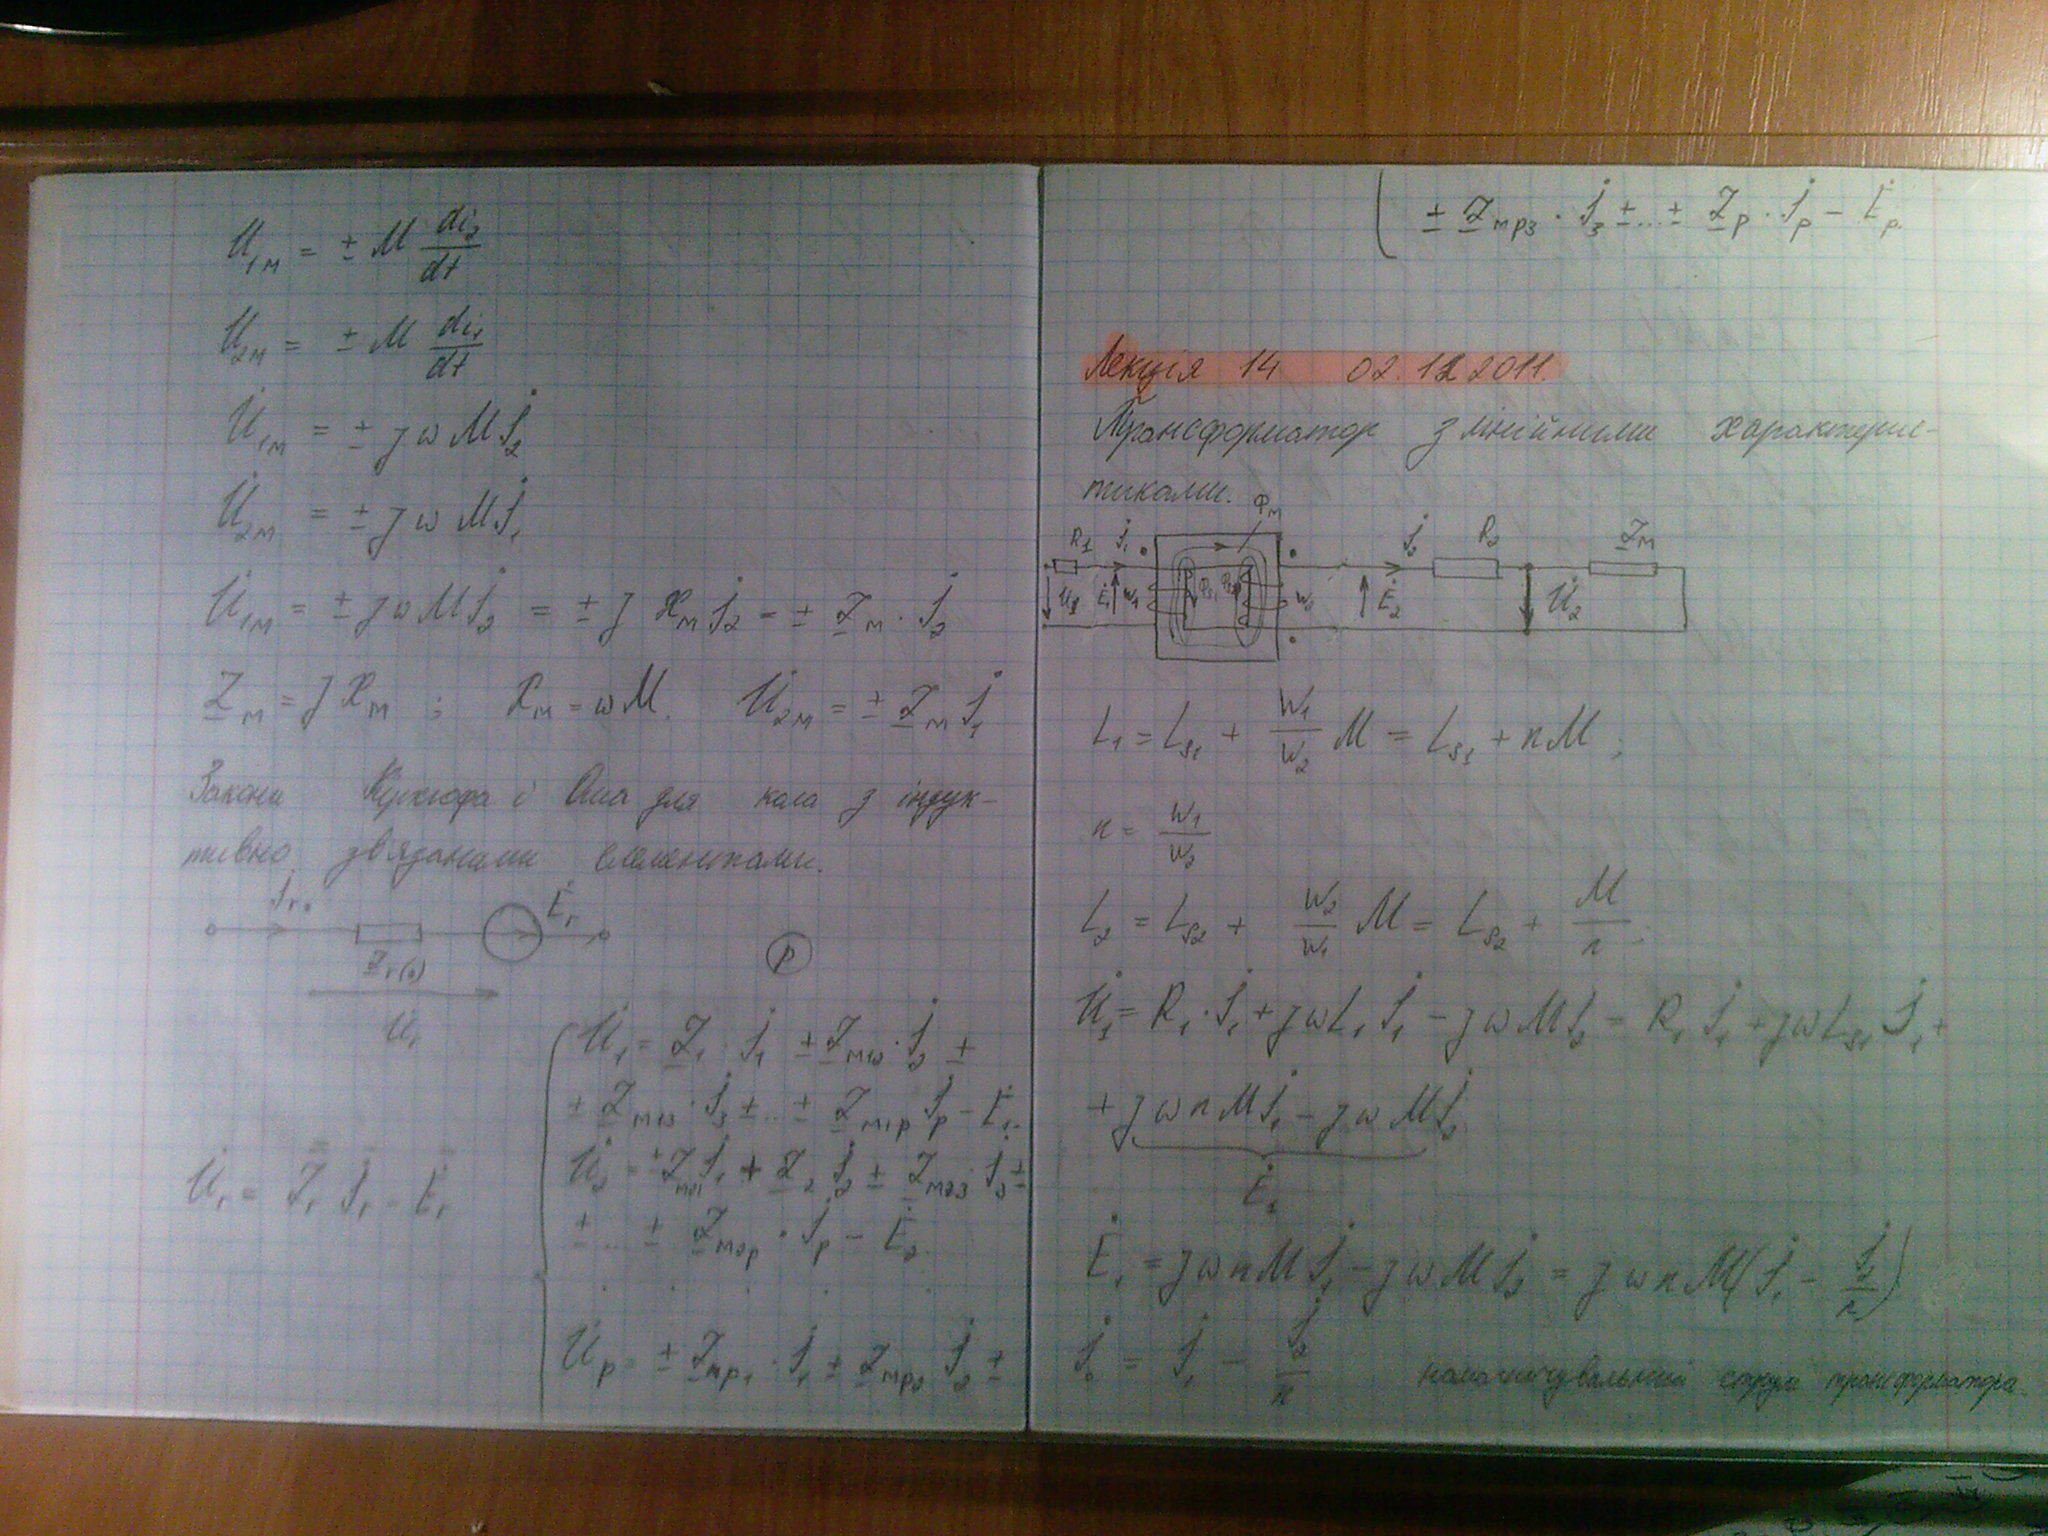 U₁м = ± M di₂/dt
U₂м = ± M di₁/dt
U̇₁м = ± jωMİ₂
U̇₂м = ± jωMİ₁
U̇₁м = ± jωMİ₂ = ± j Xм İ₂ = ± Z̲м · İ₂
Z̲м = j Xм ; Xм = ωM. U̇₂м = ± Z̲м İ₁
Закони Кірхгофа і Ома для кола з індук-
тивно зв'язаними елементами.
İr Ėr
Z̲r(o)
U̇r
p
U̇₁ = Z̲₁ · İ₁ ± Z̲м₁₂ · İ₂ ±
± Z̲м₁₃ · İ₃ ± ... ± Z̲м₁p İp − Ė₁.
U̇₂ = ± Z̲м₂₁ İ₁ + Z̲₂ İ₂ ± Z̲м₂₃ · İ₃ ±
U̇r = Z̄r İr − Ēr
± ... ± Z̲м₂p · İp − Ė₂.
. . . . .
U̇p = ± Z̲мp₁ · İ₁ ± Z̲мp₂ İ₂ ±
± Z̲мp₃ · İ₃ ± ... ± Z̲p · İp − Ėp.
Лекція 14 02.12.2011.
Трансформатор з лінійними характерис-
тиками.
Фм
R₁ İ₁ İ₂ R₂ Z̲м
U̇₁ Ė₁ W₁ Фs₁ Фs₂ W₂ Ė₂ U̇₂
L₁ = Ls₁ + W₁/W₂ M = Ls₁ + nM ;
n = W₁/W₂
L₂ = Ls₂ + W₂/W₁ M = Ls₂ + M/n ;
U̇₁ = R₁ · İ₁ + jωL₁ İ₁ − jωMİ₂ = R₁ İ₁ + jωLs₁ İ₁ +
+ jωnMİ₁ − jωMİ₂
Ė₁
Ė₁ = jωnMİ₁ − jωMİ₂ = jωnM(İ₁ − İ₂/n)
İ₀ = İ₁ − İ₂/n намагнічувальний струм трансформатора